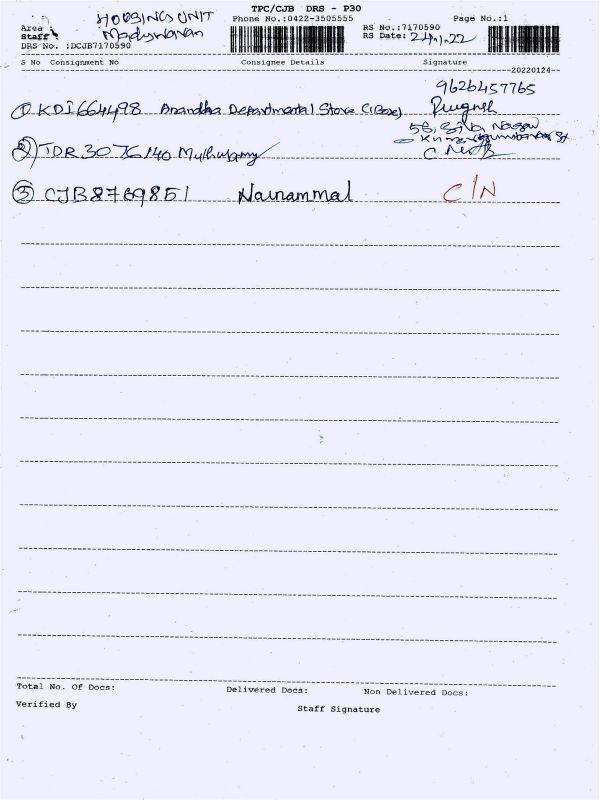 TPC/CJB DRS - P30
HOUSING UNIT
Phone No.:0422-3505555
Page No.:1
Area :
RS No.:7170590
Staff :
RS Date: 24.1.22
DRS No. :DCJB7170590
S No Consignment No Consignee Details Signature
20220124
9626457765
① KDI664498 Anandha Departmental Store (1Box)
58, Siva Nagar
② TDR3076140 Muthusamy
③ CJB8769851 Nainammal C/N
Total No. Of Docs: Delivered Docs: Non Delivered Docs:
Verified By Staff Signature